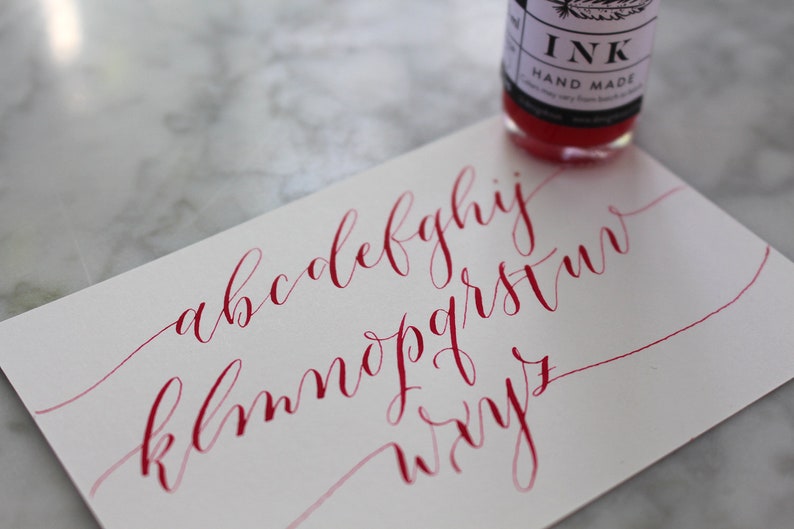 INK
HAND MADE
Colors may vary from batch to batch
abcdefghij
klmnopqrstuv
wxyz